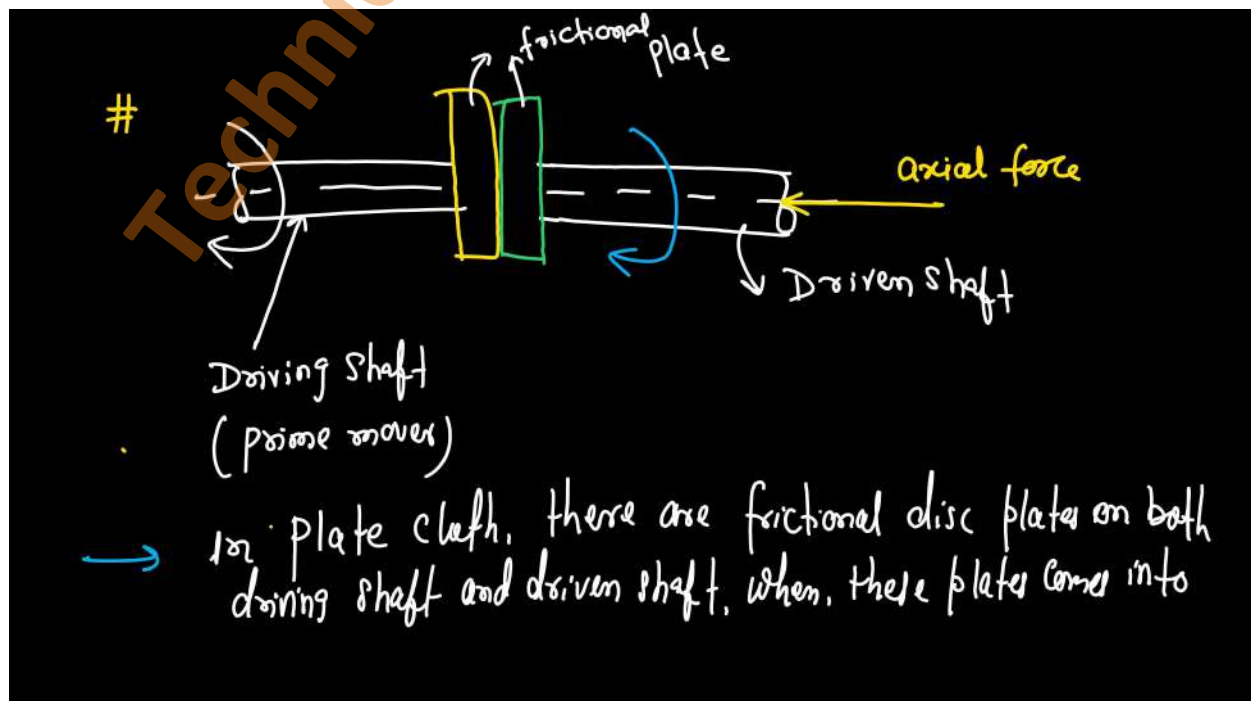 frictional
plate
#
axial force
Driven shaft
Driving shaft
(prime mover)
In plate cluth, there are frictional disc plates on both
driving shaft and driven shaft, when, these plates comes into
Techni